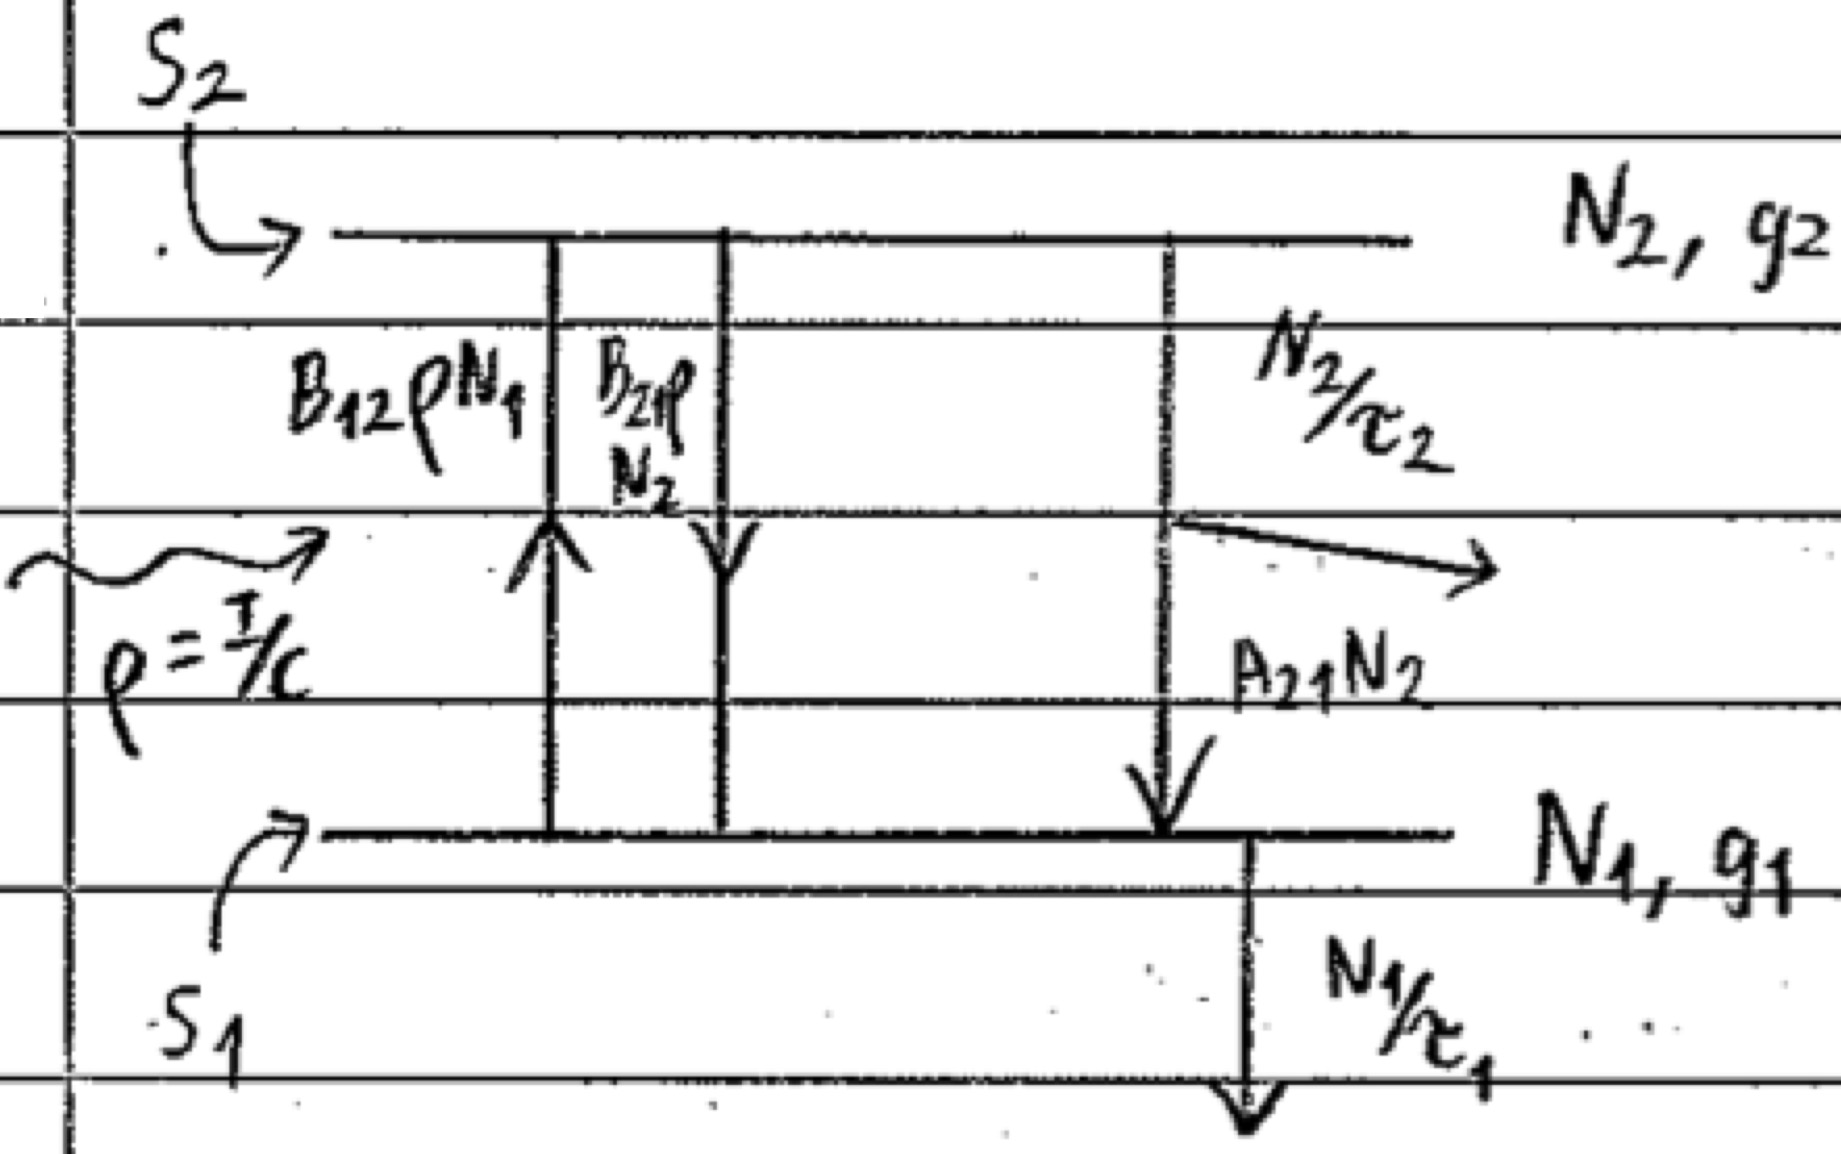 S2
N2, g2
B12ρN1
B21ρ
N2
N2/τ2
ρ = I/c
A21N2
N1, g1
S1
N1/τ1